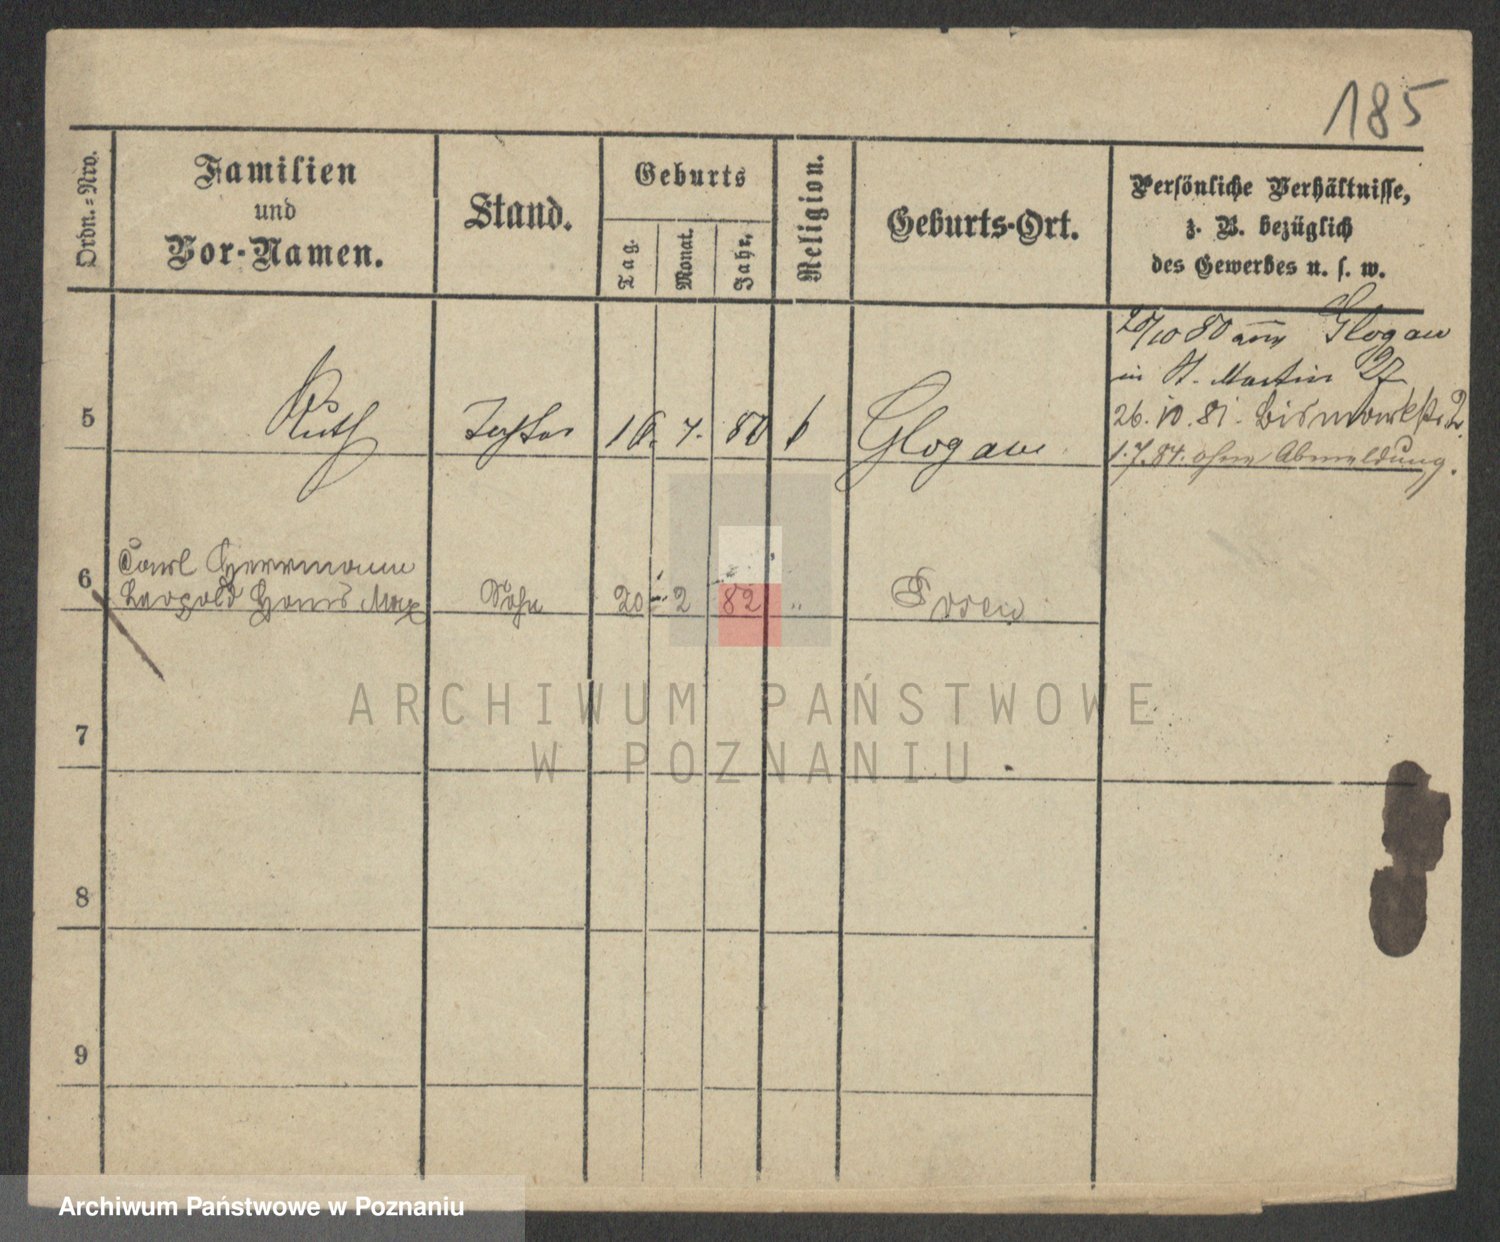 185
Ordn.-Nro.
Familien
und
Vor-Namen.
Stand.
Geburts
Tag.
Monat.
Jahr.
Religion.
Geburts-Ort.
Persönliche Verhältnisse,
z. B. bezüglich
des Gewerbes u. s. w.
5
Ruth
Tochter
16. 7. 80
Glogau
/10 80 Glogau
in St. Martin 27
26. 10. 81. Bismarckstr. 2.
1.7.84. ohne Abmeldung.
6
Carl Herrmann
Leopold Hans Max
Sohn
20 2 82
"
Posen
7
8
9
ARCHIWUM PAŃSTWOWE
W POZNANIU
Archiwum Państwowe w Poznaniu